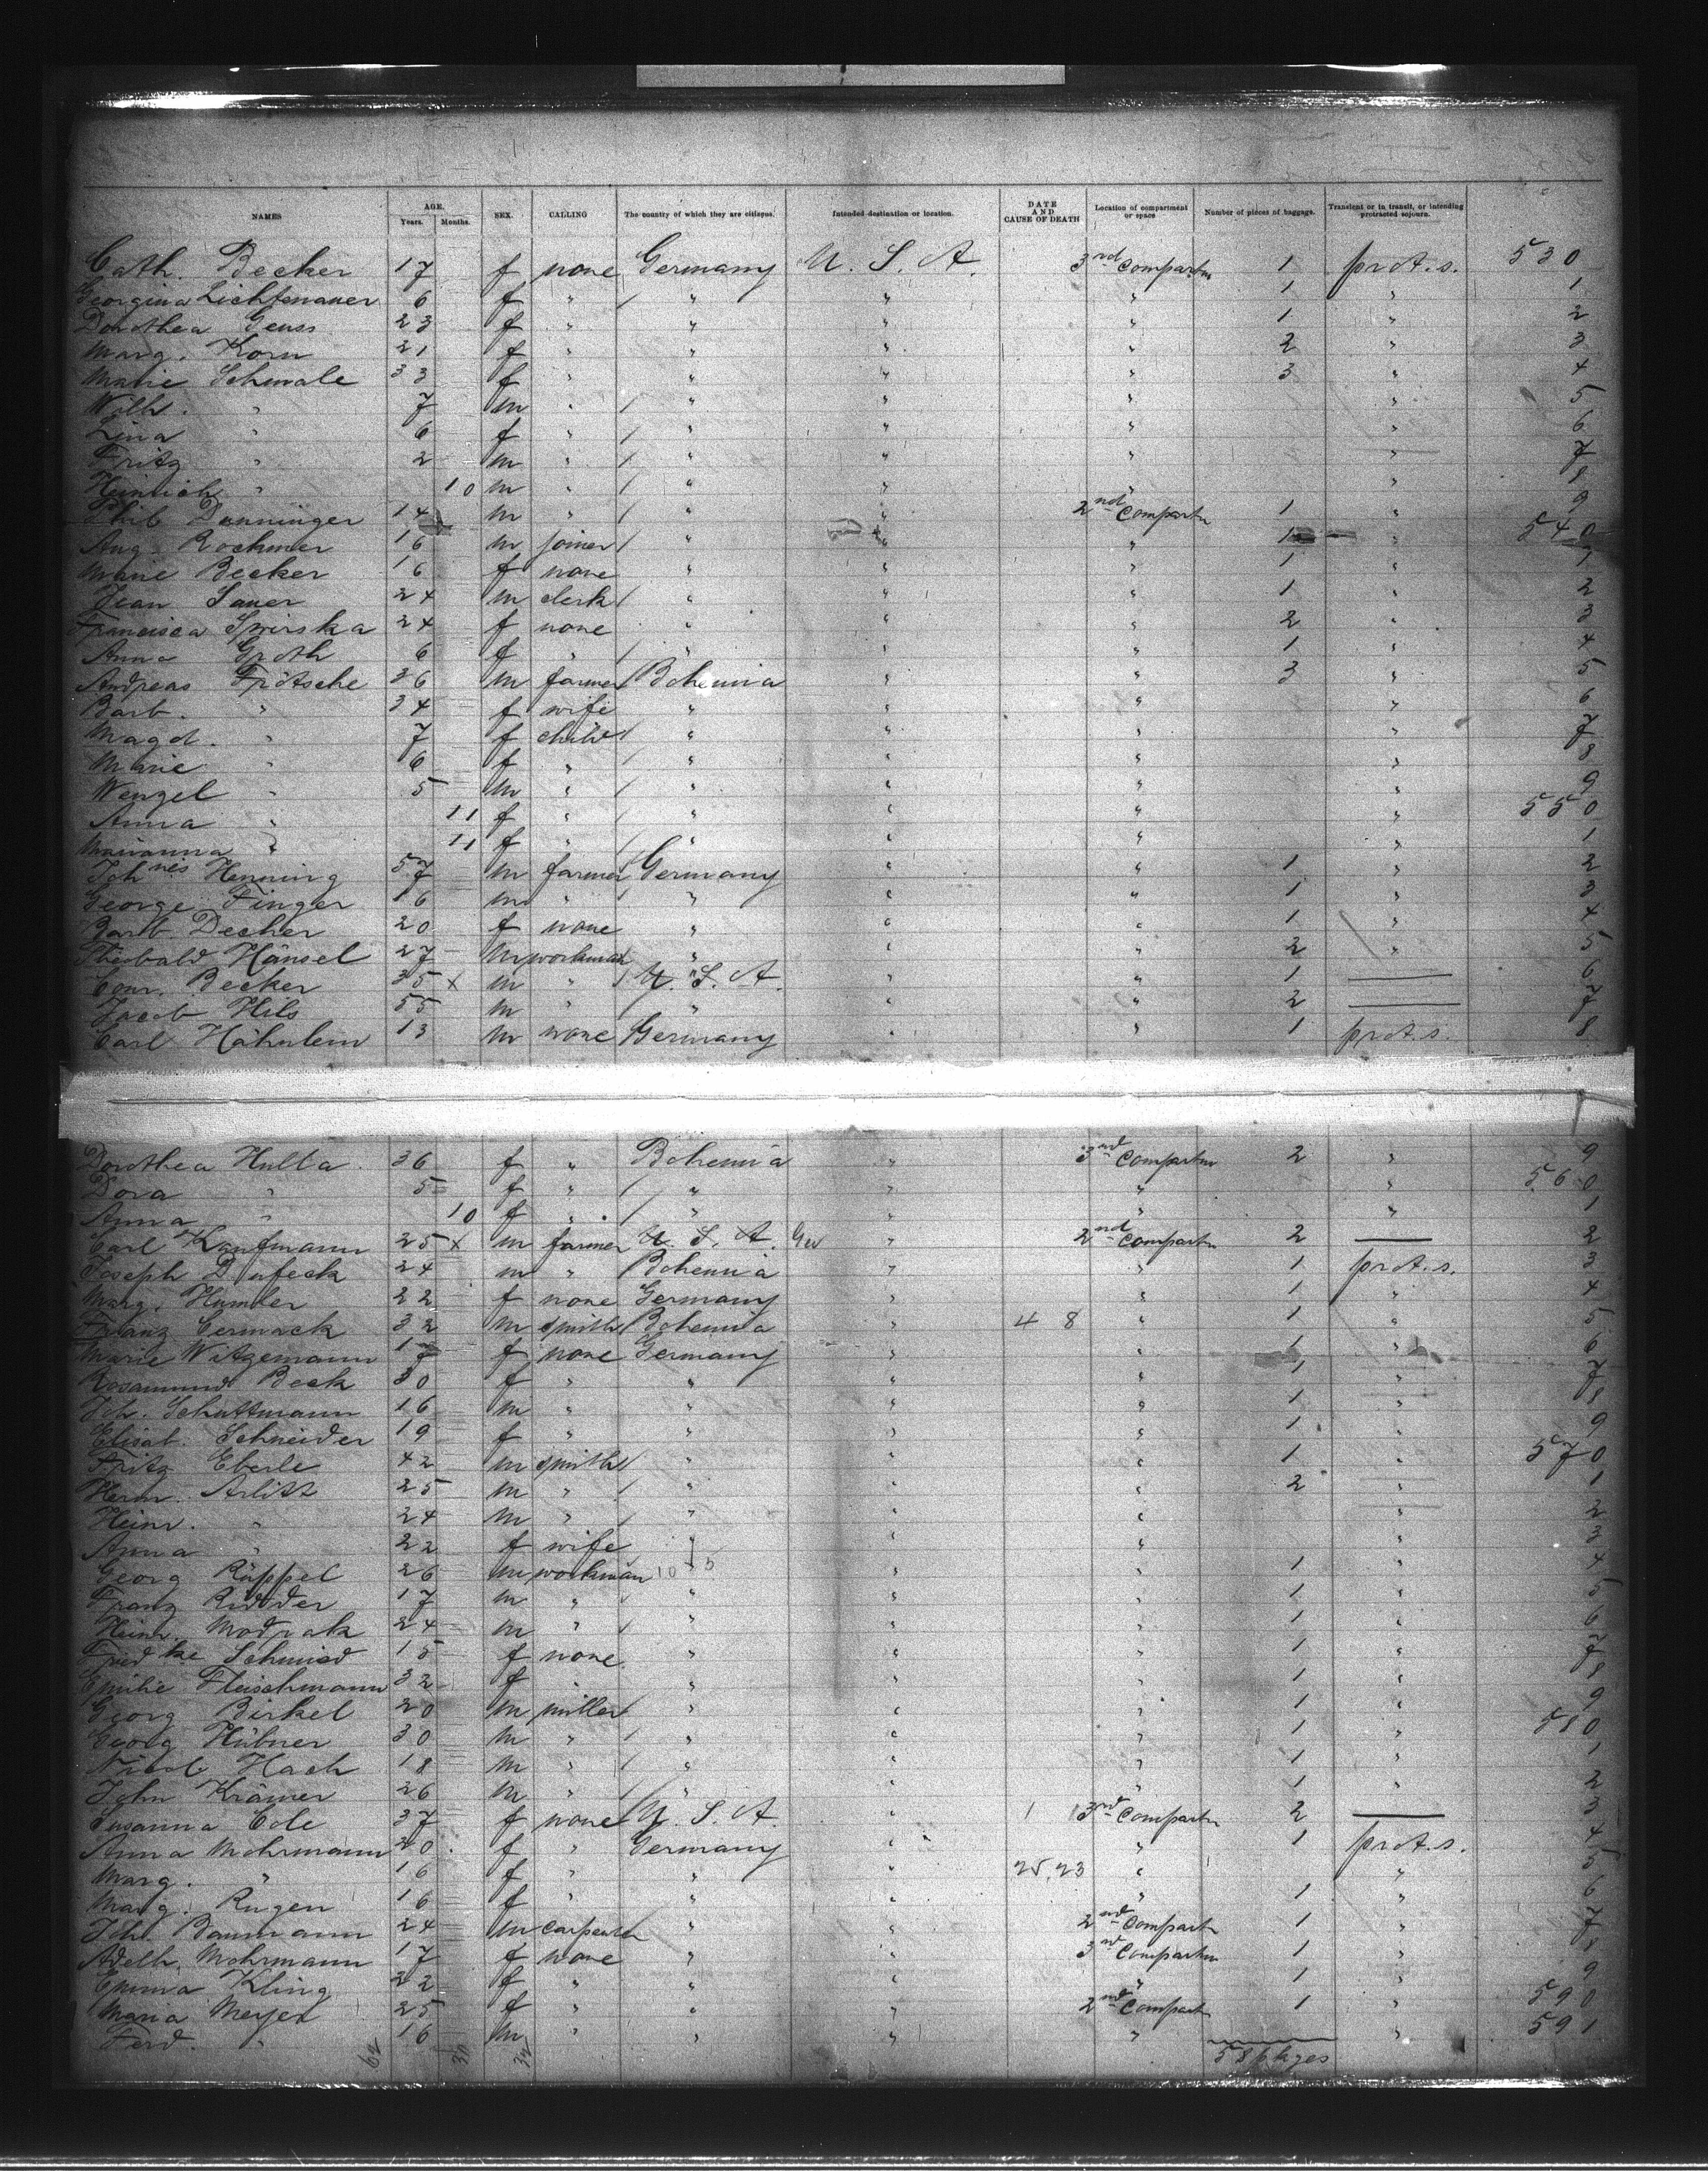 NAMES AGE. Years. Months. SEX. CALLING The country of which they are citizens. Intended destination or location. DATE AND CAUSE OF DEATH Location of compartment or space Number of pieces of baggage. Transient or in transit, or intending protracted sojourn.
Cath. Becker 17 f none Germany U. S. A. 3rd Compartm 1 prot. s. 530
Georgina Lichtenauer 6 f " " " " 1 " 1
Dorothea Geuss 23 f " " " " 1 " 2
Marg. Korn 21 f " " " " 2 " 3
Marie Schwale 33 f " " " " 3 " 4
Wilh. " 7 m " " " " " 5
Lina " 6 f " " " " " 6
Fritz " 2 m " " " " " 7
Heinrich " 10 m " " " " " 8
Phil Dünninger 14 m " " " 2nd Compartm 1 " 9
Aug. Rochmer 16 m joiner " " " 1 " 540
Marie Becker 16 f none " " " 1 " 1
Jean Sauer 24 m clerk " " " 1 " 2
Francisca Swirska 24 f none " " " 2 " 3
Anna Groth 6 f " " " " 1 " 4
Andreas Frötsche 36 m farmer Bohemia " " 3 " 5
Barb. " 34 f wife " " " " 6
Magd. " 7 f child " " " " 7
Marie " 6 f " " " " " 8
Wenzel " 5 m " " " " " 9
Anna " 11 f " " " " " 550
Marianna " 11 f " " " " " 1
Johnes Henning 57 m farmer Germany " " 1 " 2
George Finger 16 m " " " " 1 " 3
Barb. Decher 20 f none " " " 1 " 4
Theobald Hänsel 27 m workman " " " 2 " 5
Conr. Becker 35 x m " U. S. A. " " 1 — 6
Jacob Hils 55 m " " " " 2 — 7
Carl Hähnlein 13 m none Germany " " 1 prot. s. 8
Dorothea Hulla 36 f " Bohemia " 3rd Compartm 2 " 9
Dora " 5 f " " " " " 560
Anna " 10 f " " " " " 1
Carl Kaufmann 25 x m farmer U. S. A. Ger " 2nd Compartm 2 — 2
Joseph Dufeck 24 m " Bohemia " " 1 prot. s. 3
Marg. Humler 22 f none Germany " " 1 " 4
Franz Cermack 32 m smith Bohemia " 4 8 " 1 " 5
Marie Witzemann 17 f none Germany " " 1 " 6
Rosamund Beck 30 f " " " " 1 " 7
Joh. Schuttmann 16 m " " " " 1 " 8
Elisab. Schneider 19 f " " " " 1 " 9
Fritz Eberle 42 m smith " " " 1 " 570
Herm. Arlitt 25 m " " " " 2 " 1
Heinr. " 24 m " " " " " 2
Anna " 22 f wife " " " " 3
Georg Rüppel 26 m workman " " " 1 " 4
Franz Ridder 17 m " " " " 1 " 5
Heinr. Modrak 24 m " " " " 1 " 6
Friedke Schmied 15 f none " " " 1 " 7
Emilie Fleischmann 32 f " " " " 1 " 8
Georg Birkel 20 m miller " " " 1 " 9
Georg Hübner 30 m " " " " 1 " 580
Nicol Hach 18 m " " " " 1 " 1
John Krämer 26 m " " " " 1 " 2
Susanna Cole 37 f none U. S. A. " 3rd Compartm 2 — 3
Anna Mohrmann 20 f " Germany " " 1 prot. s. 4
Marg. " 16 f " " " 25,23 " " 5
Marg. Rugen 16 f " " " " 1 " 6
Joh. Baumann 24 m carpenter " " 2nd Compartm 1 " 7
Adelh. Mohrmann 17 f none " " 3rd Compartm 1 " 8
Emma Kling 22 f " " " " 1 " 9
Maria Meyer 25 f " " " 2nd Compartm 1 " 590
Ferd. " 16 m " " " " " 591
62 30 32 58 pkges